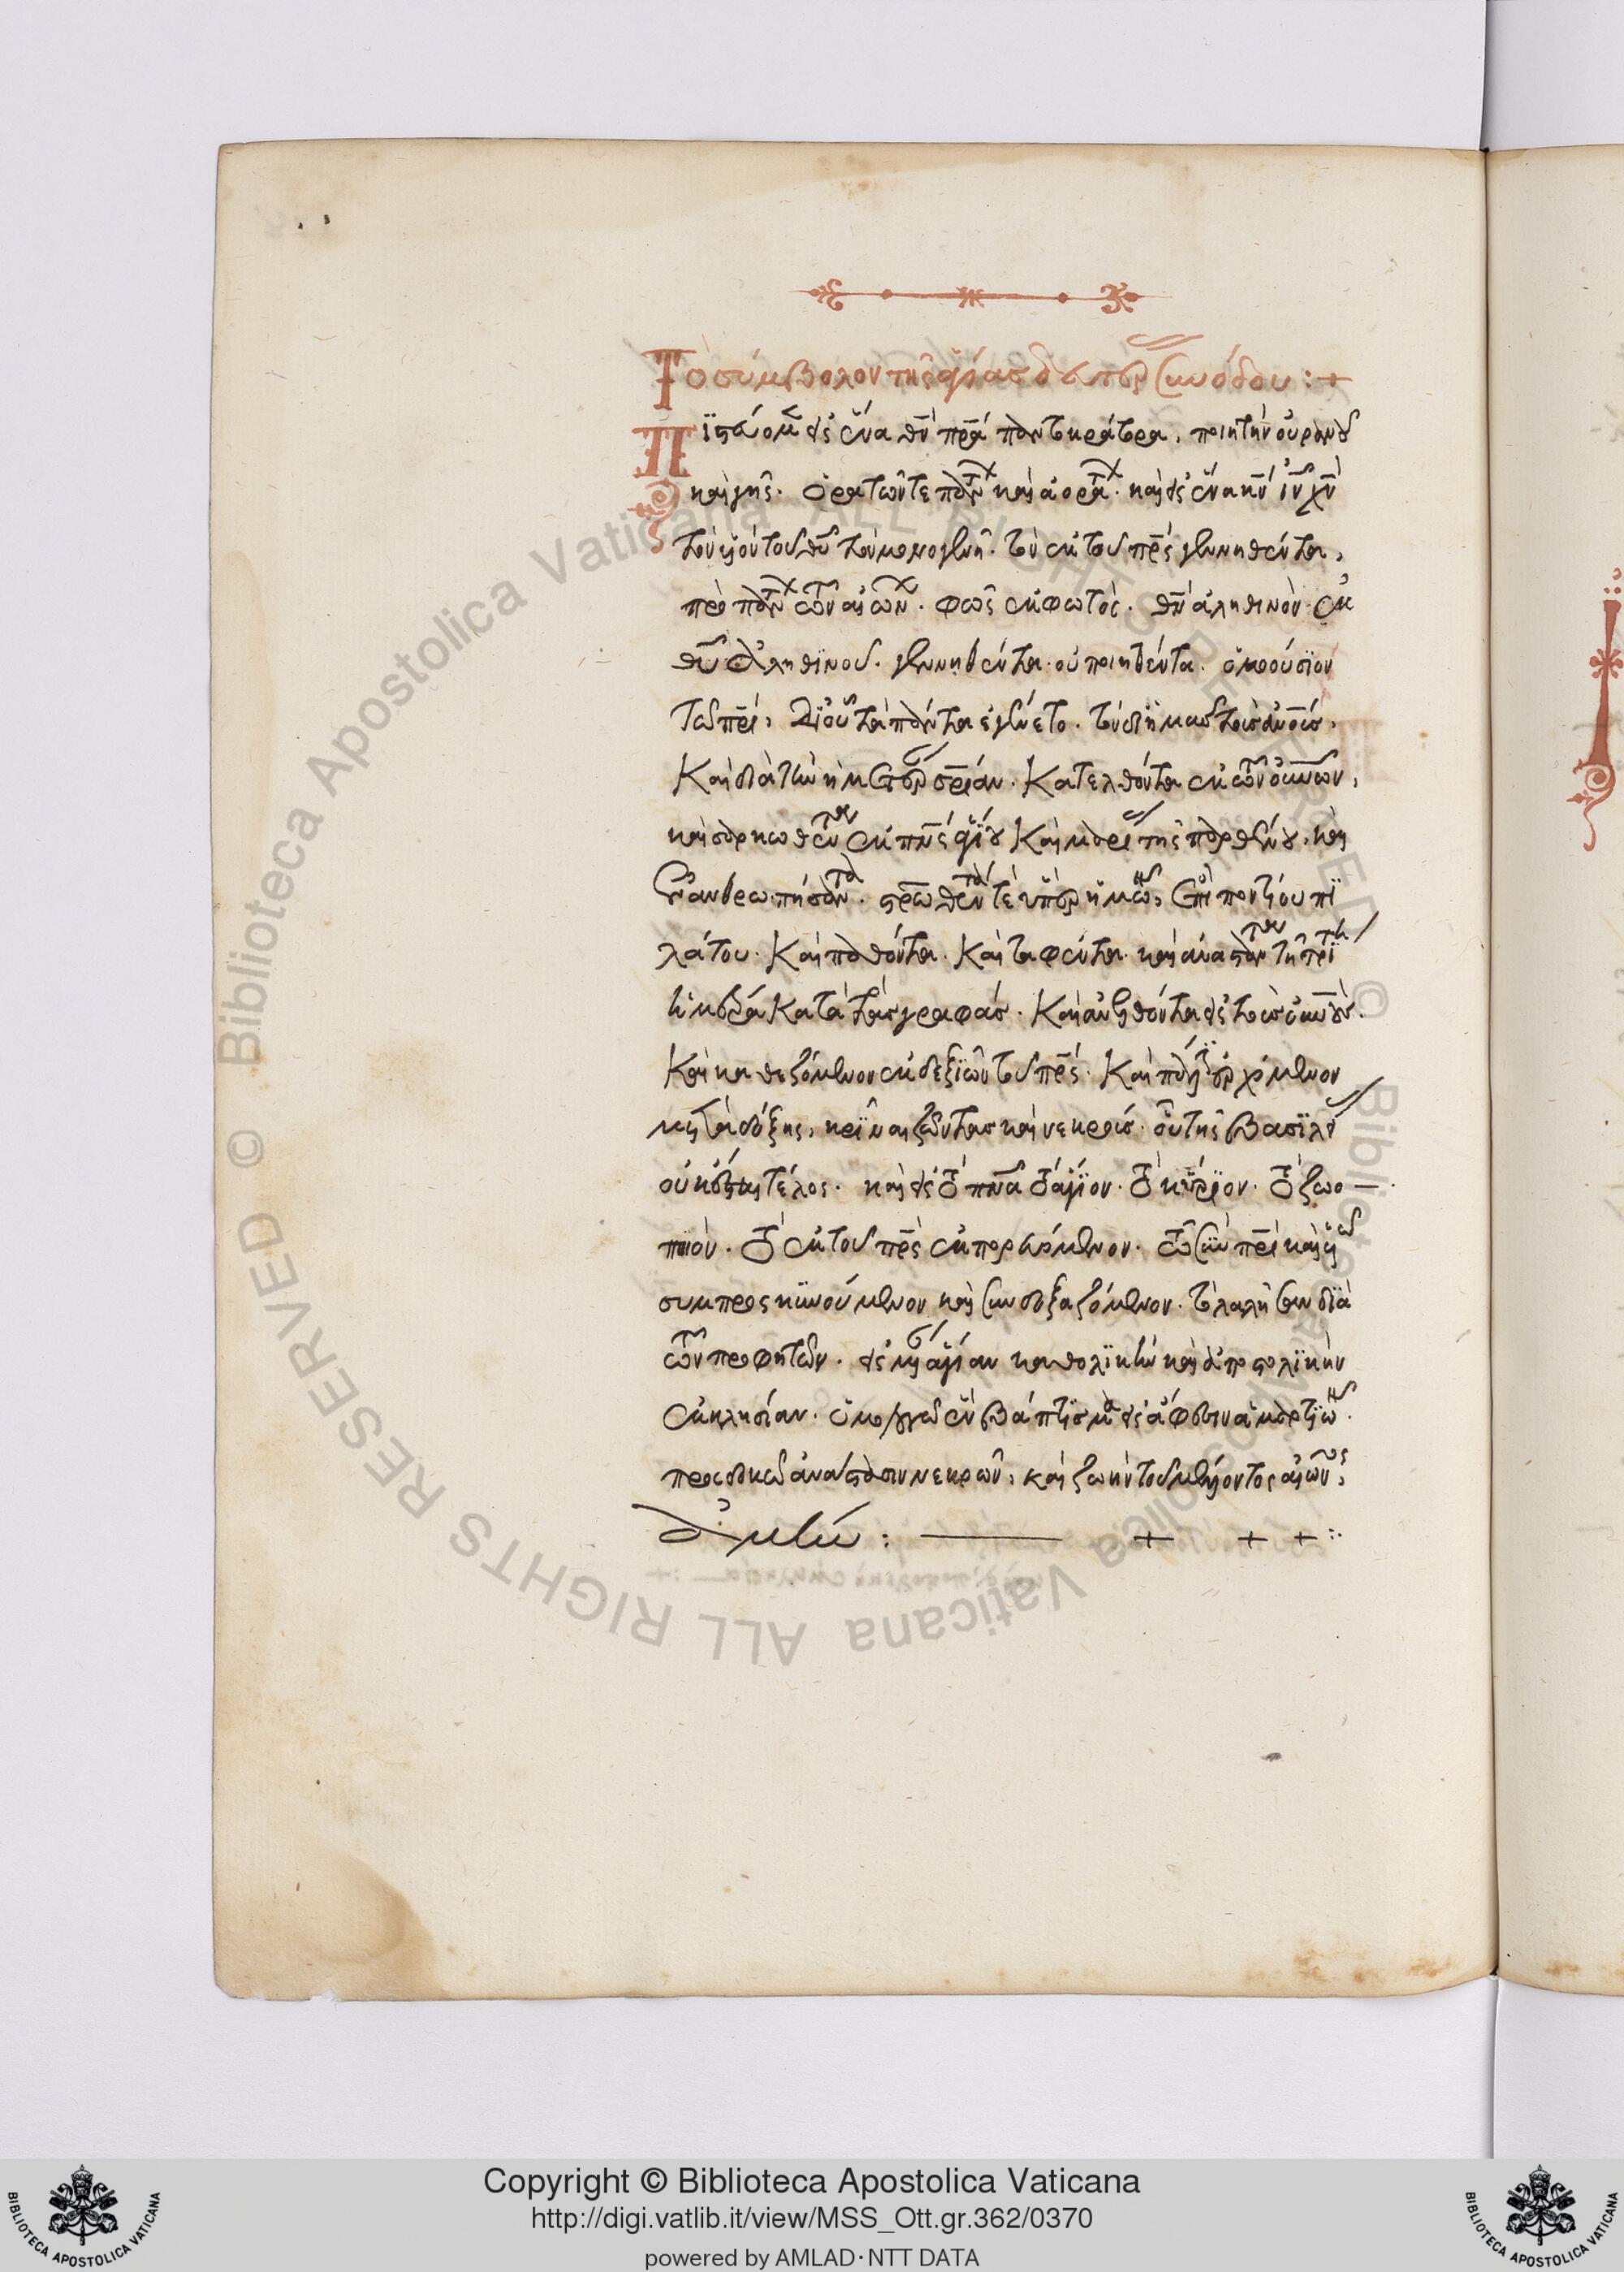 Τὸ σύμβολον τῆς ἁγίας δευτέρας συνόδου :+
Πϊστεύομεν εἰς ἕνα θν πρα παντοκράτορα, ποιητὴν οὐρανοῦ
καὶ γῆς. ὁρατῶν τε πάντων καὶ ἀοράτων. καὶ εἰς ἕνα κν ιν χν
τὸν υἱὸν τοῦ θυ τὸν μονογενῆ. τὸν ἐκ τοῦ πρς γεννηθέντα,
πρὸ πάντων τῶν αἰώνων. φῶς ἐκ φωτός. θν ἀληθινὸν ἐκ
θυ ἀληθϊνοῦ. γεννηθέντα οὐ ποιηθέντα. ὁμοούσϊον
τῶ πρι, δϊ οὗ τὰ πάντα ἐγένετο. τὸν δϊ ἡμᾶς τοὺς ανους,
Καὶ διὰ τὴν ἡμετέραν σρίαν. Κατελθόντα ἐκ τῶν ουνων,
καὶ σαρκωθέντα ἐκ πνς ἁγίου Καὶ μαρίας τῆς παρθένου, καὶ
ἐνανθρωπήσαντα. σρωθέντα τὲ ὑπὲρ ἡμῶν, ἐπὶ ποντίου πϊ
λάτου. Καὶ παθόντα. Καὶ ταφέντα. καὶ ἀναστάντα τῆ τρίτη
ἡμέρα Κατὰ τὰς γραφάς. Καὶ ἀνελθόντα εἰς τοὺς ουνους.
Καὶ καθεζόμενον ἐκ δεξϊῶν τοῦ πρς. Καὶ πάλϊν ἐρχόμενον
μετὰ δόξης, κρῖναι ζῶντας καὶ νεκρούς. οὗ τῆς βασϊλείας
οὐκ ἔσται τέλος. καὶ εἰς τὸ πνα τὸ ἅγϊον. τὸ κύρϊον. τὸ ζωο –
ποιόν. τὸ ἐκ τοῦ πρς ἐκπορευόμενον. τὸ σὺν πρι καὶ υἱῶ
συμπροςκϋνούμενον καὶ συνδοξαζόμενον. τὸ λαλῆσαν δϊὰ
τῶν προφητῶν. εἰς μίαν ἁγίαν καθολϊκὴν καὶ ἀποστολϊκὴν
ἐκκλησίαν. ὁμολογῶ ἓν βάπτϊσμα εἰς ἄφεσιν ἁμαρτϊῶν.
προςδοκῶ ἀνάστασιν νεκρῶν, καὶ ζωὴν τοῦ μέλλοντος αἰῶνος,
ἀμήν : —— + + + :·
Copyright © Biblioteca Apostolica Vaticana
http://digi.vatlib.it/view/MSS_Ott.gr.362/0370
powered by AMLAD·NTT DATA